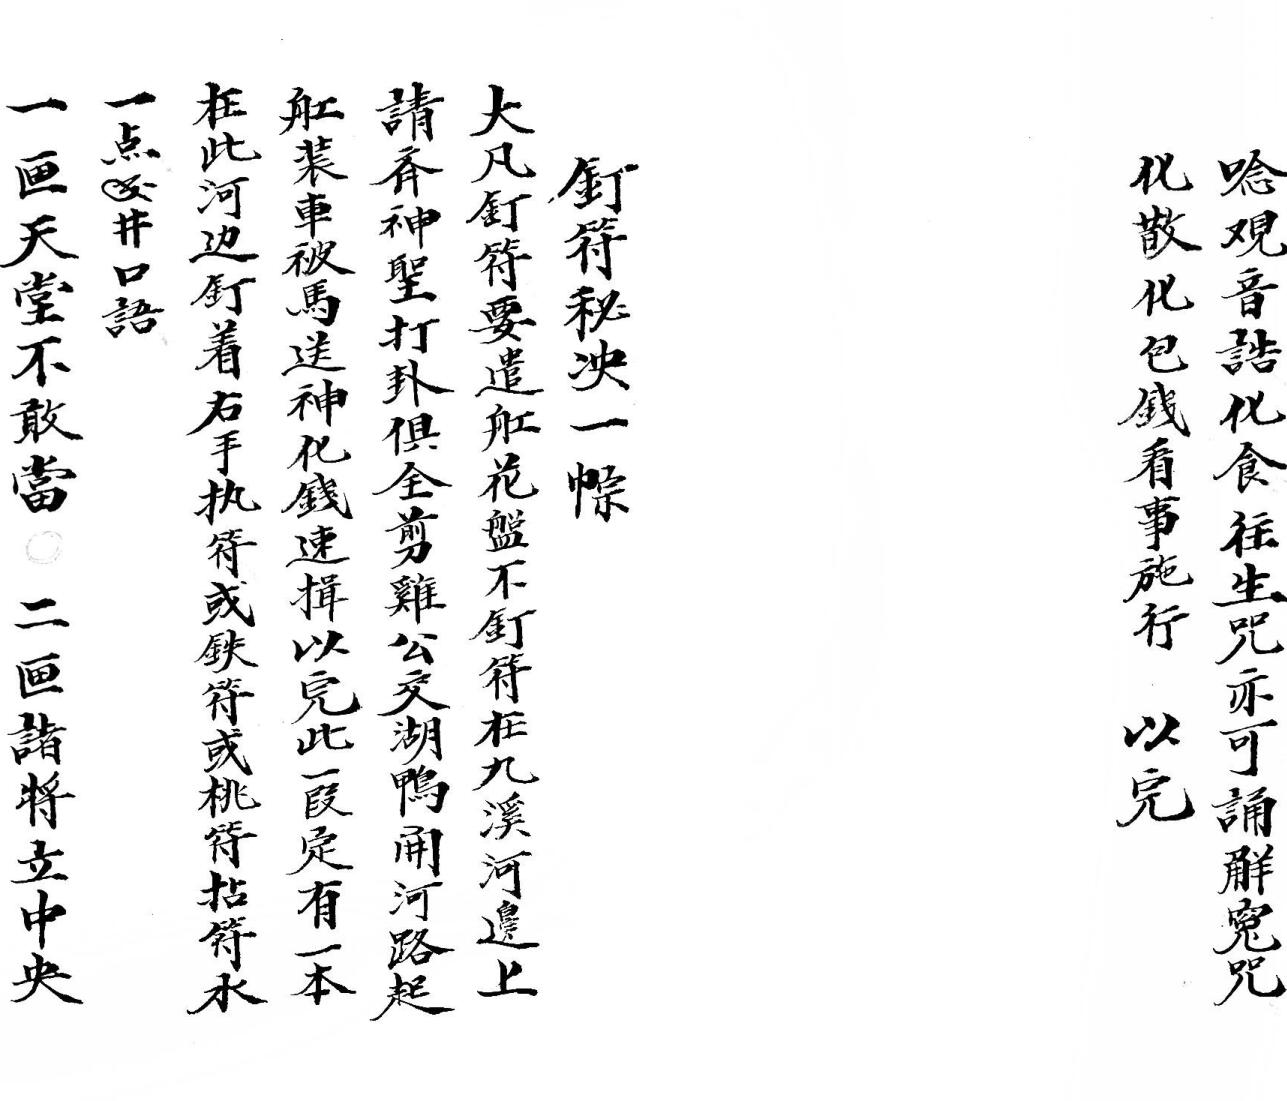 唸观音誥化食往生咒亦可誦觧寃咒
化散化包錢看事施行 以完
釘符秘决一
大凡釘符要遣舡花盤不釘符在九溪河邊上
請斉神聖打卦俱全剪雞公交湖鴨開河路起
舡装車被馬送神化錢速揖以完此一段定有一本
在此河边釘着右手执符或鉄符或桃符拈符水
一点井口語
一画天堂不敢當 二画諸将立中央